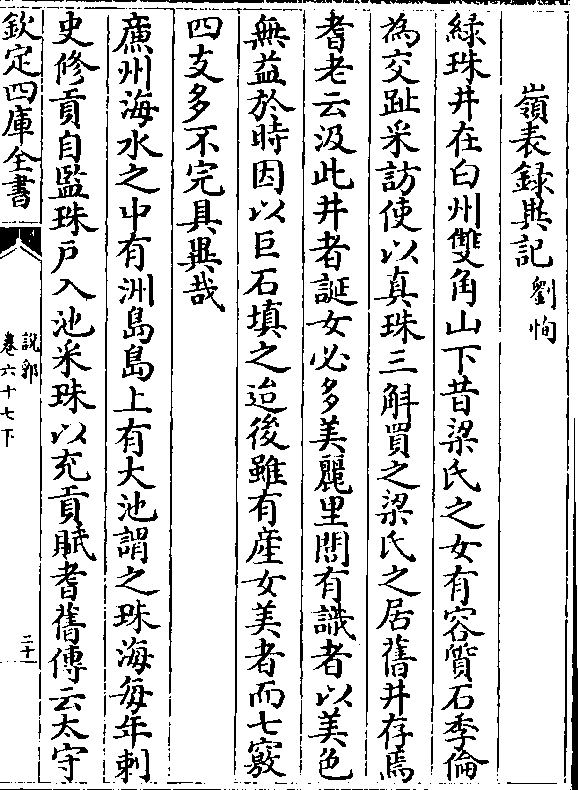 嶺表録異記 劉恂
緑珠井在白州雙角山下昔梁氏之女有容質石季倫
為交趾采訪使以真珠三斛買之梁氏之居舊井存焉
耆老云汲此井者誕女必多美麗里閭有識者以美色
無益於時因以巨石填之迨後雖有産女美者而七竅
四支多不完具異哉
廉州海水之中有洲島島上有大池謂之珠海每年刺
史修貢自監珠户入池采珠以充貢賦耆舊傳云太守
欽定四庫全書
說郛
卷六十七下
二十